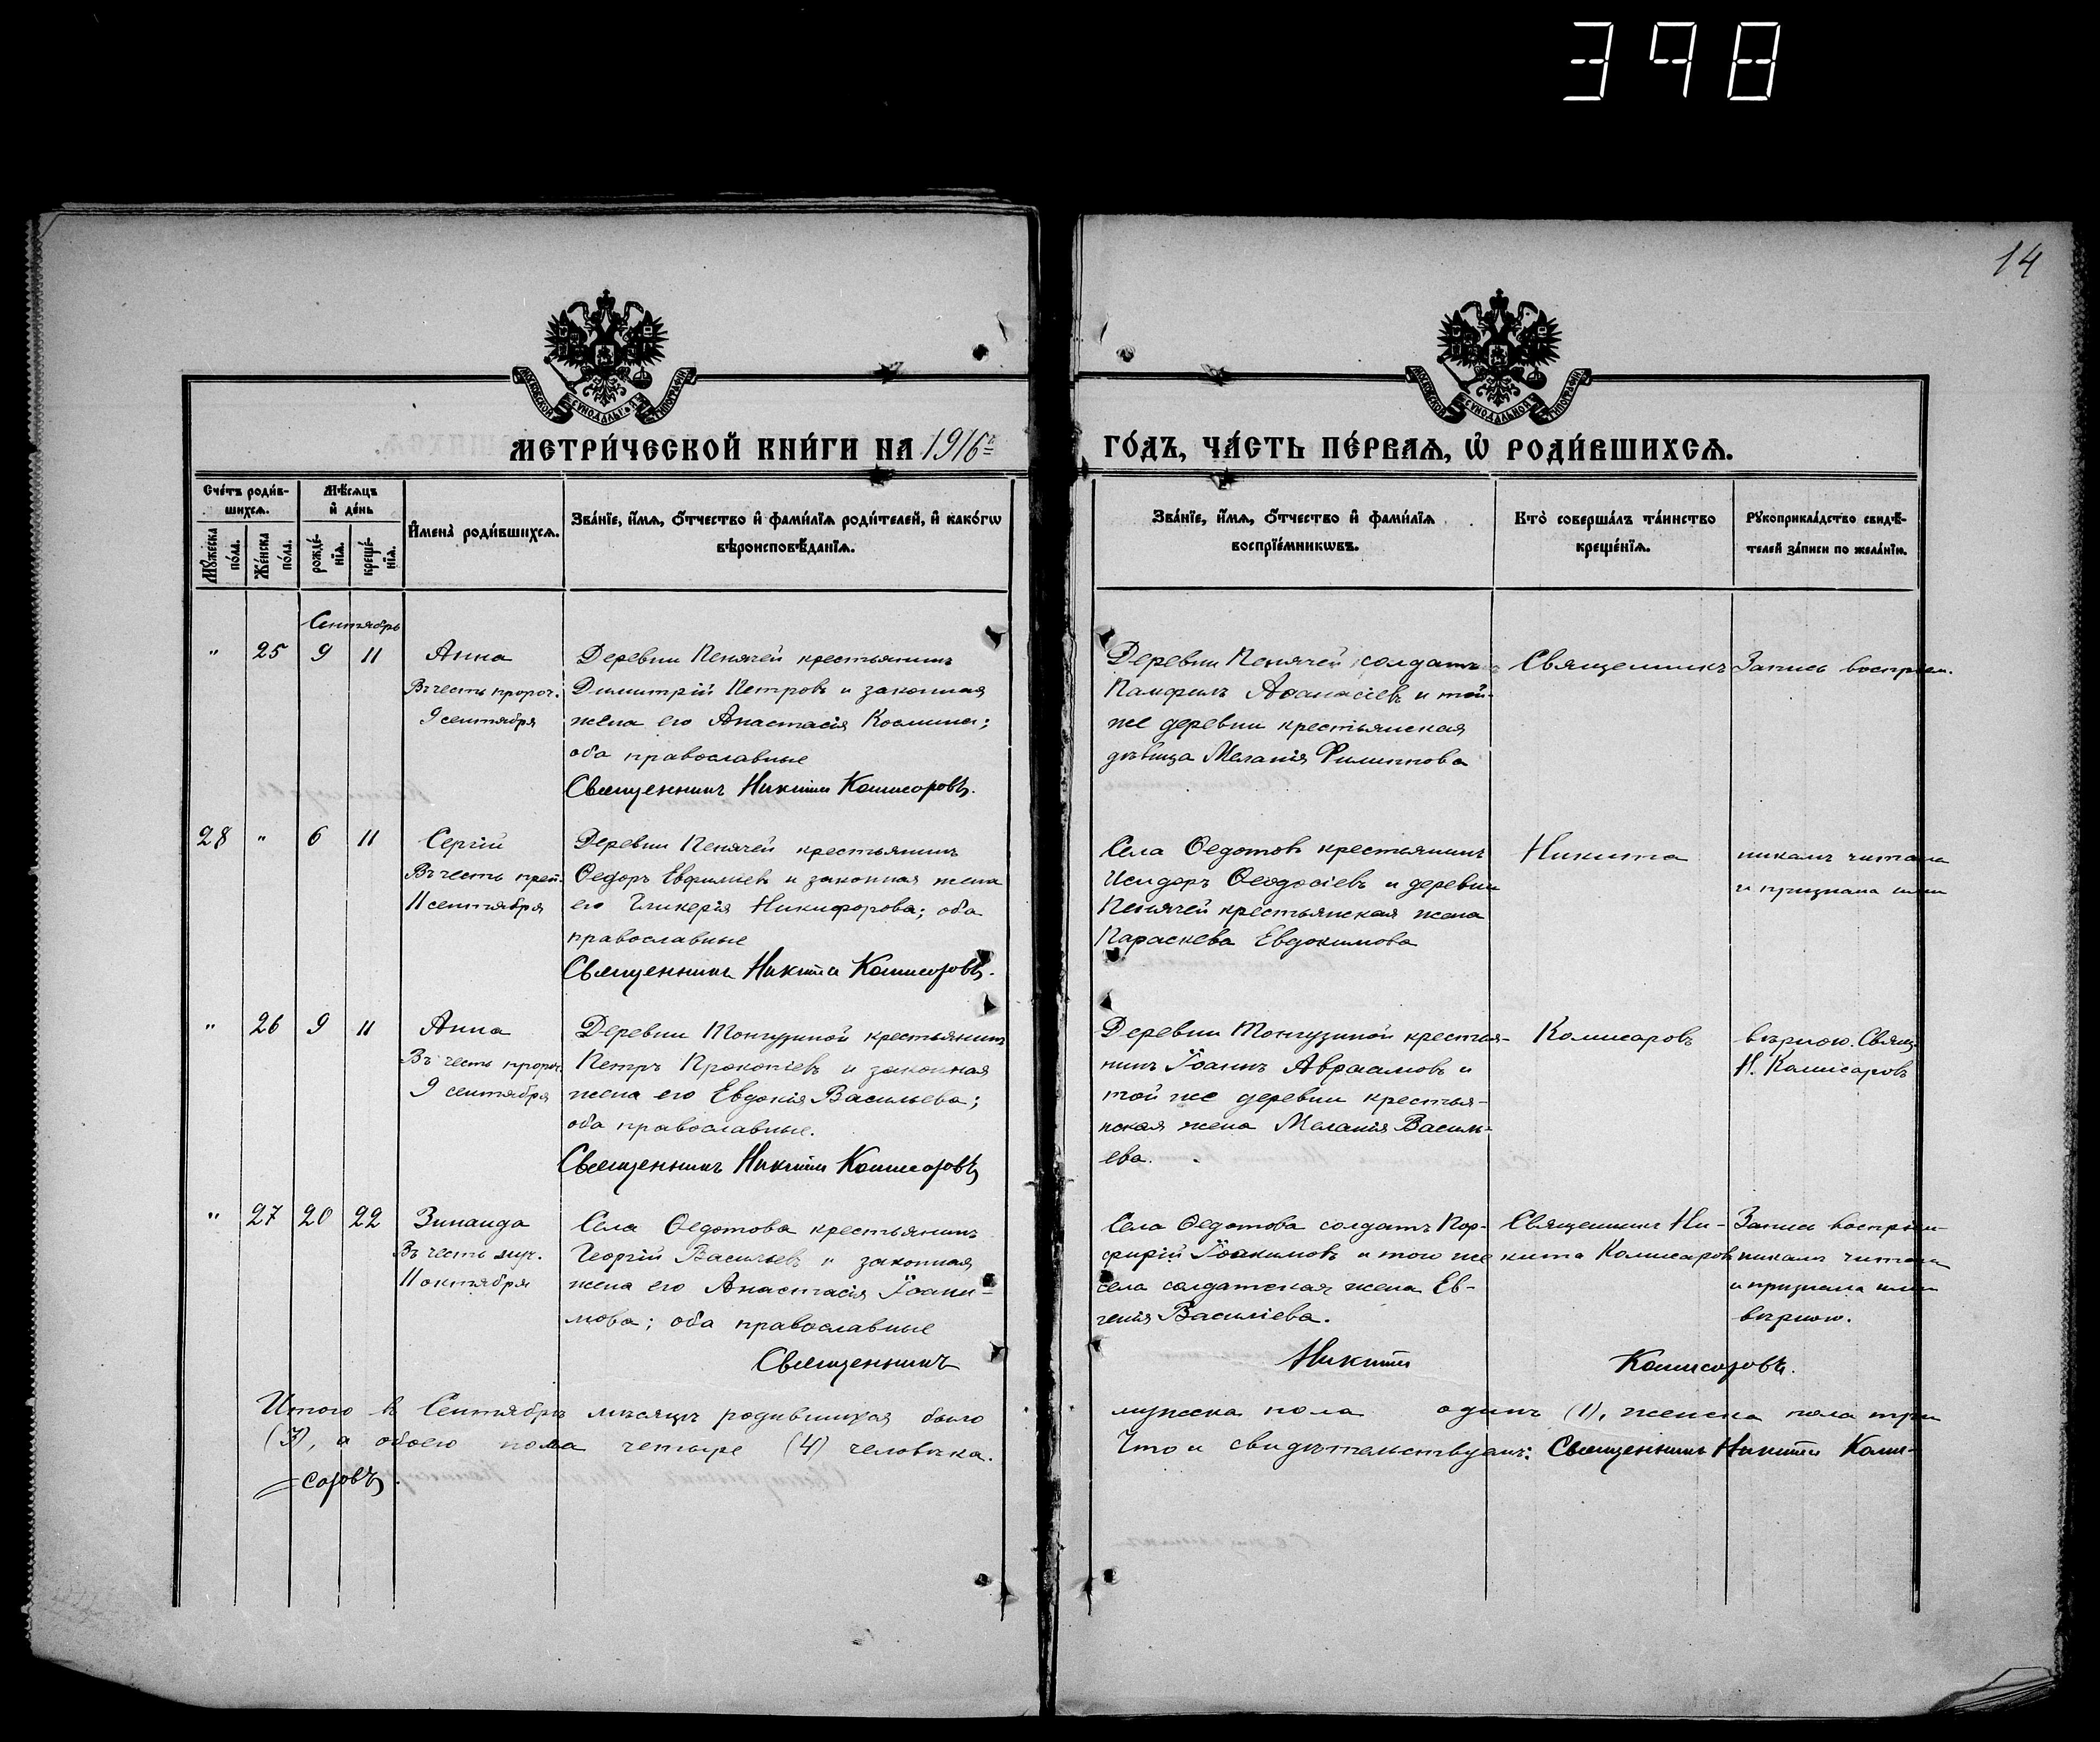 398
14
МОСКОВСКОЙ СѴНОДАЛЬНОЙ ТИПОГРАФІИ
МОСКОВСКОЙ СѴНОДАЛЬНОЙ ТИПОГРАФІИ
МЕТРИ́ЧЕСКОЙ КНИ́ГИ НА 1916 г.
ГО́ДЪ, ЧА́СТЬ ПЕ́РВАѦ, Ѡ҆ РОДИ́ВШИХСѦ.
Сче́тъ роди́в-
шихсѧ.
Мꙋ́жеска по́ла.
Же́нска по́ла.
Мѣ́сѧцъ
и҆ де́нь
рожде́-нїѧ.
креще́-нїѧ.
И҆мена̀ роди́вшихсѧ.
Зва́нїе, и҆́мѧ, ѻ҆́тчество и҆ фами́лїѧ роди́телей, и҆ како́гѡ
вѣроисповѣ́данїѧ.
Зва́нїе, и҆́мѧ, ѻ҆́тчество и҆ фами́лїѧ
воспрїе́мникѡвъ.
Кто̀ соверша́лъ та́инство
креще́нїѧ.
Рꙋкоприкла́дство свидѣ́-
телей за́писи по жела́нїю.
Сентябрь
" 25 9 11
Анна
Въ честь пророч.
9 сентября
Деревни Пенячей крестьянинъ
Димитрій Петровъ и законная
жена его Анастасія Космина;
оба православные
Священникъ Никита Комисаровъ.
Деревни Пенячей солдатъ
Памфилъ Аѳанасіевъ и той-
же деревни крестьянская
дѣвица Меланія Филиппова
Священникъ
Запись воспріем.
28 " 6 11
Сергій
Въ честь преп.
11 сентября
Деревни Пенячей крестьянинъ
Ѳедоръ Евфиміевъ и законная жена
его Гликерія Никифорова; оба
православные
Священникъ Никита Комисаровъ.
Села Ѳедотова крестьянинъ
Исидоръ Ѳеодосіевъ и деревни
Пенячей крестьянская жена
Параскева Евдокимова
Никита
никамъ читана
и признана ими
" 26 9 11
Анна
Въ честь пророч.
9 сентября
Деревни Тонгузиной крестьянинъ
Петръ Прокопіевъ и законная
жена его Евдокія Васильева;
оба православные.
Священникъ Никита Комисаровъ
Деревни Тонгузиной крестья-
нинъ Іоаннъ Авраамовъ и
той же деревни крестья-
нская жена Меланія Василь-
ева.
Комисаровъ
вѣрною. Свящ.
Н. Комисаровъ
" 27 20 22
Зинаида
Въ честь муч.
11 октября
Села Ѳедотова крестьянинъ
Георгій Васильевъ и законная
жена его Анастасія Іоаки-
мова; оба православные
Священникъ
Села Ѳедотова солдатъ Пор-
фирій Іоакимовъ и того же
села солдатская жена Ев-
генія Василіева.
Никита
Священникъ Ни-
кита Комисаровъ
Комисаровъ.
Запись воспріем-
никамъ читана
и признана ими
вѣрною.
Итого въ Сентябрѣ мѣсяцѣ родившихся было мужеска пола одинъ (1), женска пола три
(3), а обоего пола четыре (4) человѣка. Что и свидѣтельствуемъ: Священникъ Никита Коми-
саровъ.